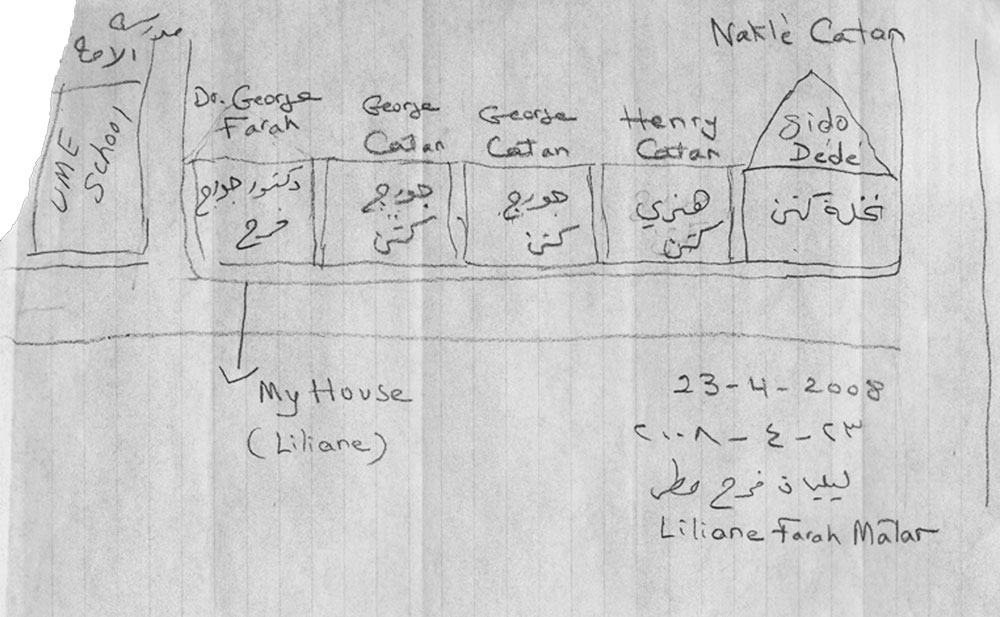 مدرسة
الامة
UME
School
Naklè Catan
Dr. George
Farah
George
Catan
George
Catan
Henry
Catan
Sido
Dédé
دكتور جورج
فرح
جورج
كتن
جورج
كتن
هنري
كتن
نخلة كتن
My House
(Liliane)
23-4-2008
٢٣-٤-٢٠٠٨
ليليان فرح مطر
Liliane Farah Matar